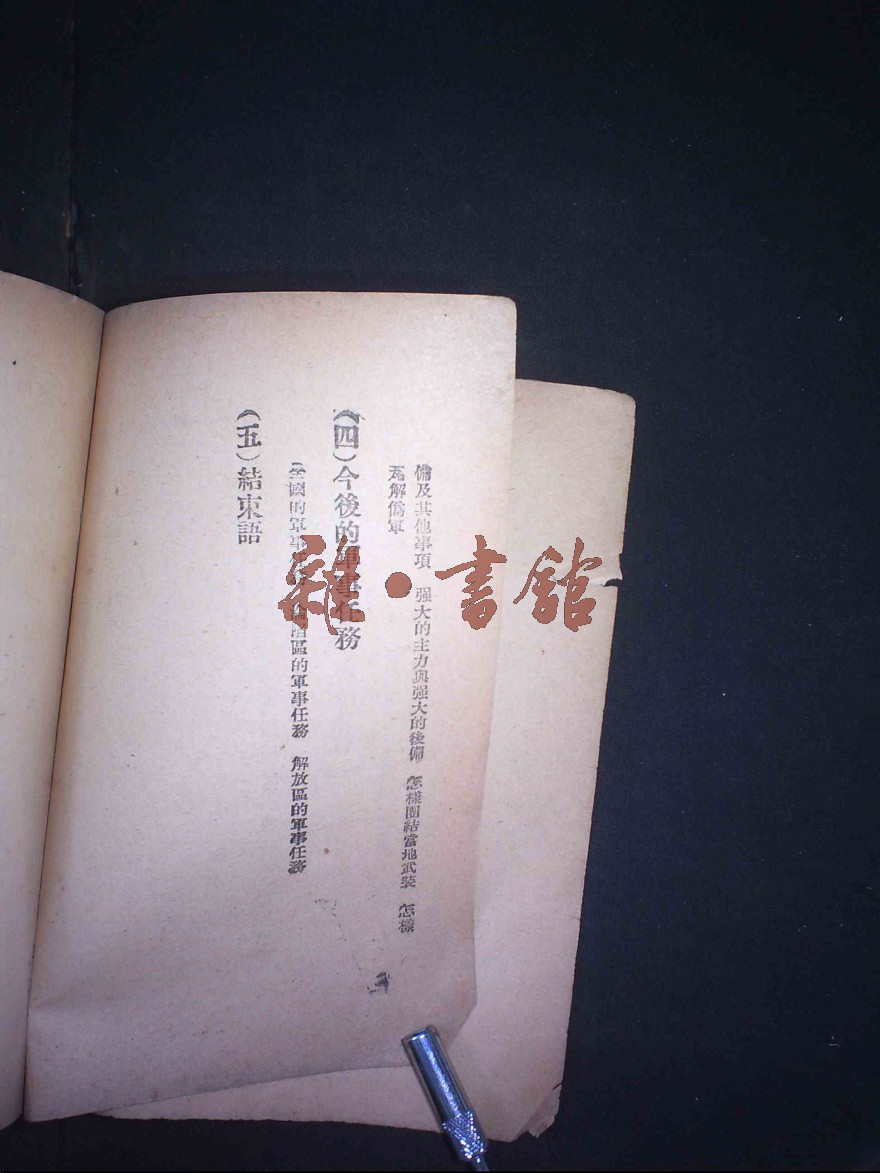 備及其他事項　强大的主力與强大的後備　怎樣團結當地武装　怎樣
瓦解僞軍
(四)今後的軍事任務
全國的軍事任務　淪陷區的軍事任務　解放區的軍事任務
(五)結束語
雜·書館